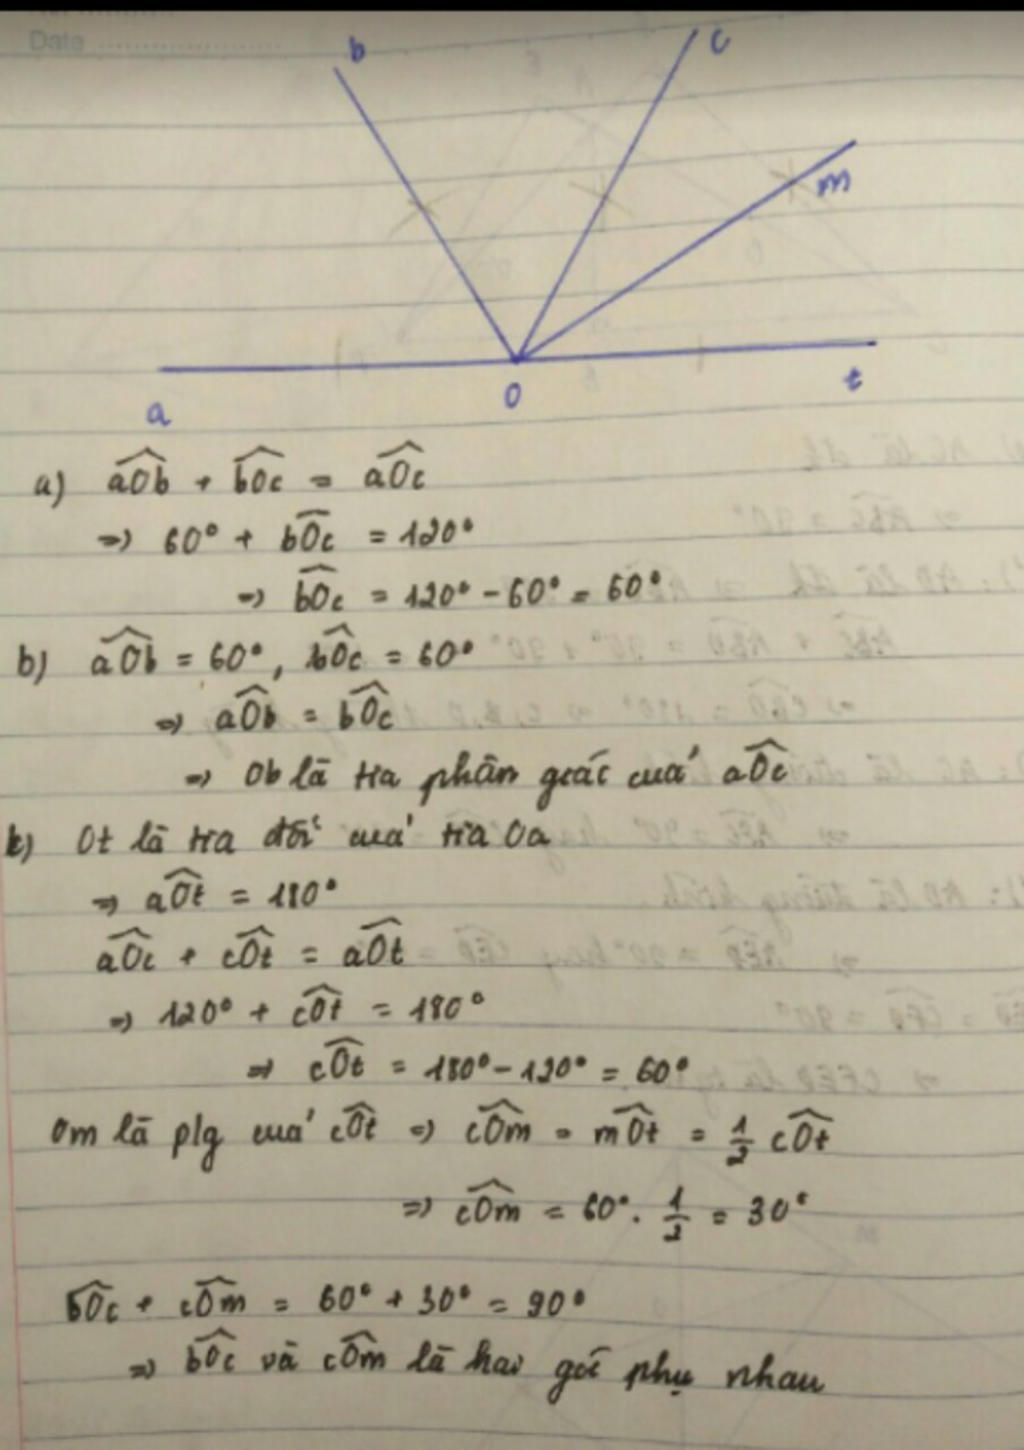 Date
b
c
m
a
O
t
a) aOb + bOc = aOc
⇒ 60° + bOc = 120°
⇒ bOc = 120° - 60° = 60°
b) aOb = 60°, bOc = 60°
⇒ aOb = bOc
⇒ Ob là tia phân giác của aOc
c) Ot là tia đối của tia Oa
⇒ aOt = 180°
aOc + cOt = aOt
⇒ 120° + cOt = 180°
⇒ cOt = 180° - 120° = 60°
Om là p/g của cOt ⇒ cOm = mOt = 1/2 cOt
⇒ cOm = 60° . 1/2 = 30°
bOc + cOm = 60° + 30° = 90°
⇒ bOc và cOm là hai góc phụ nhau